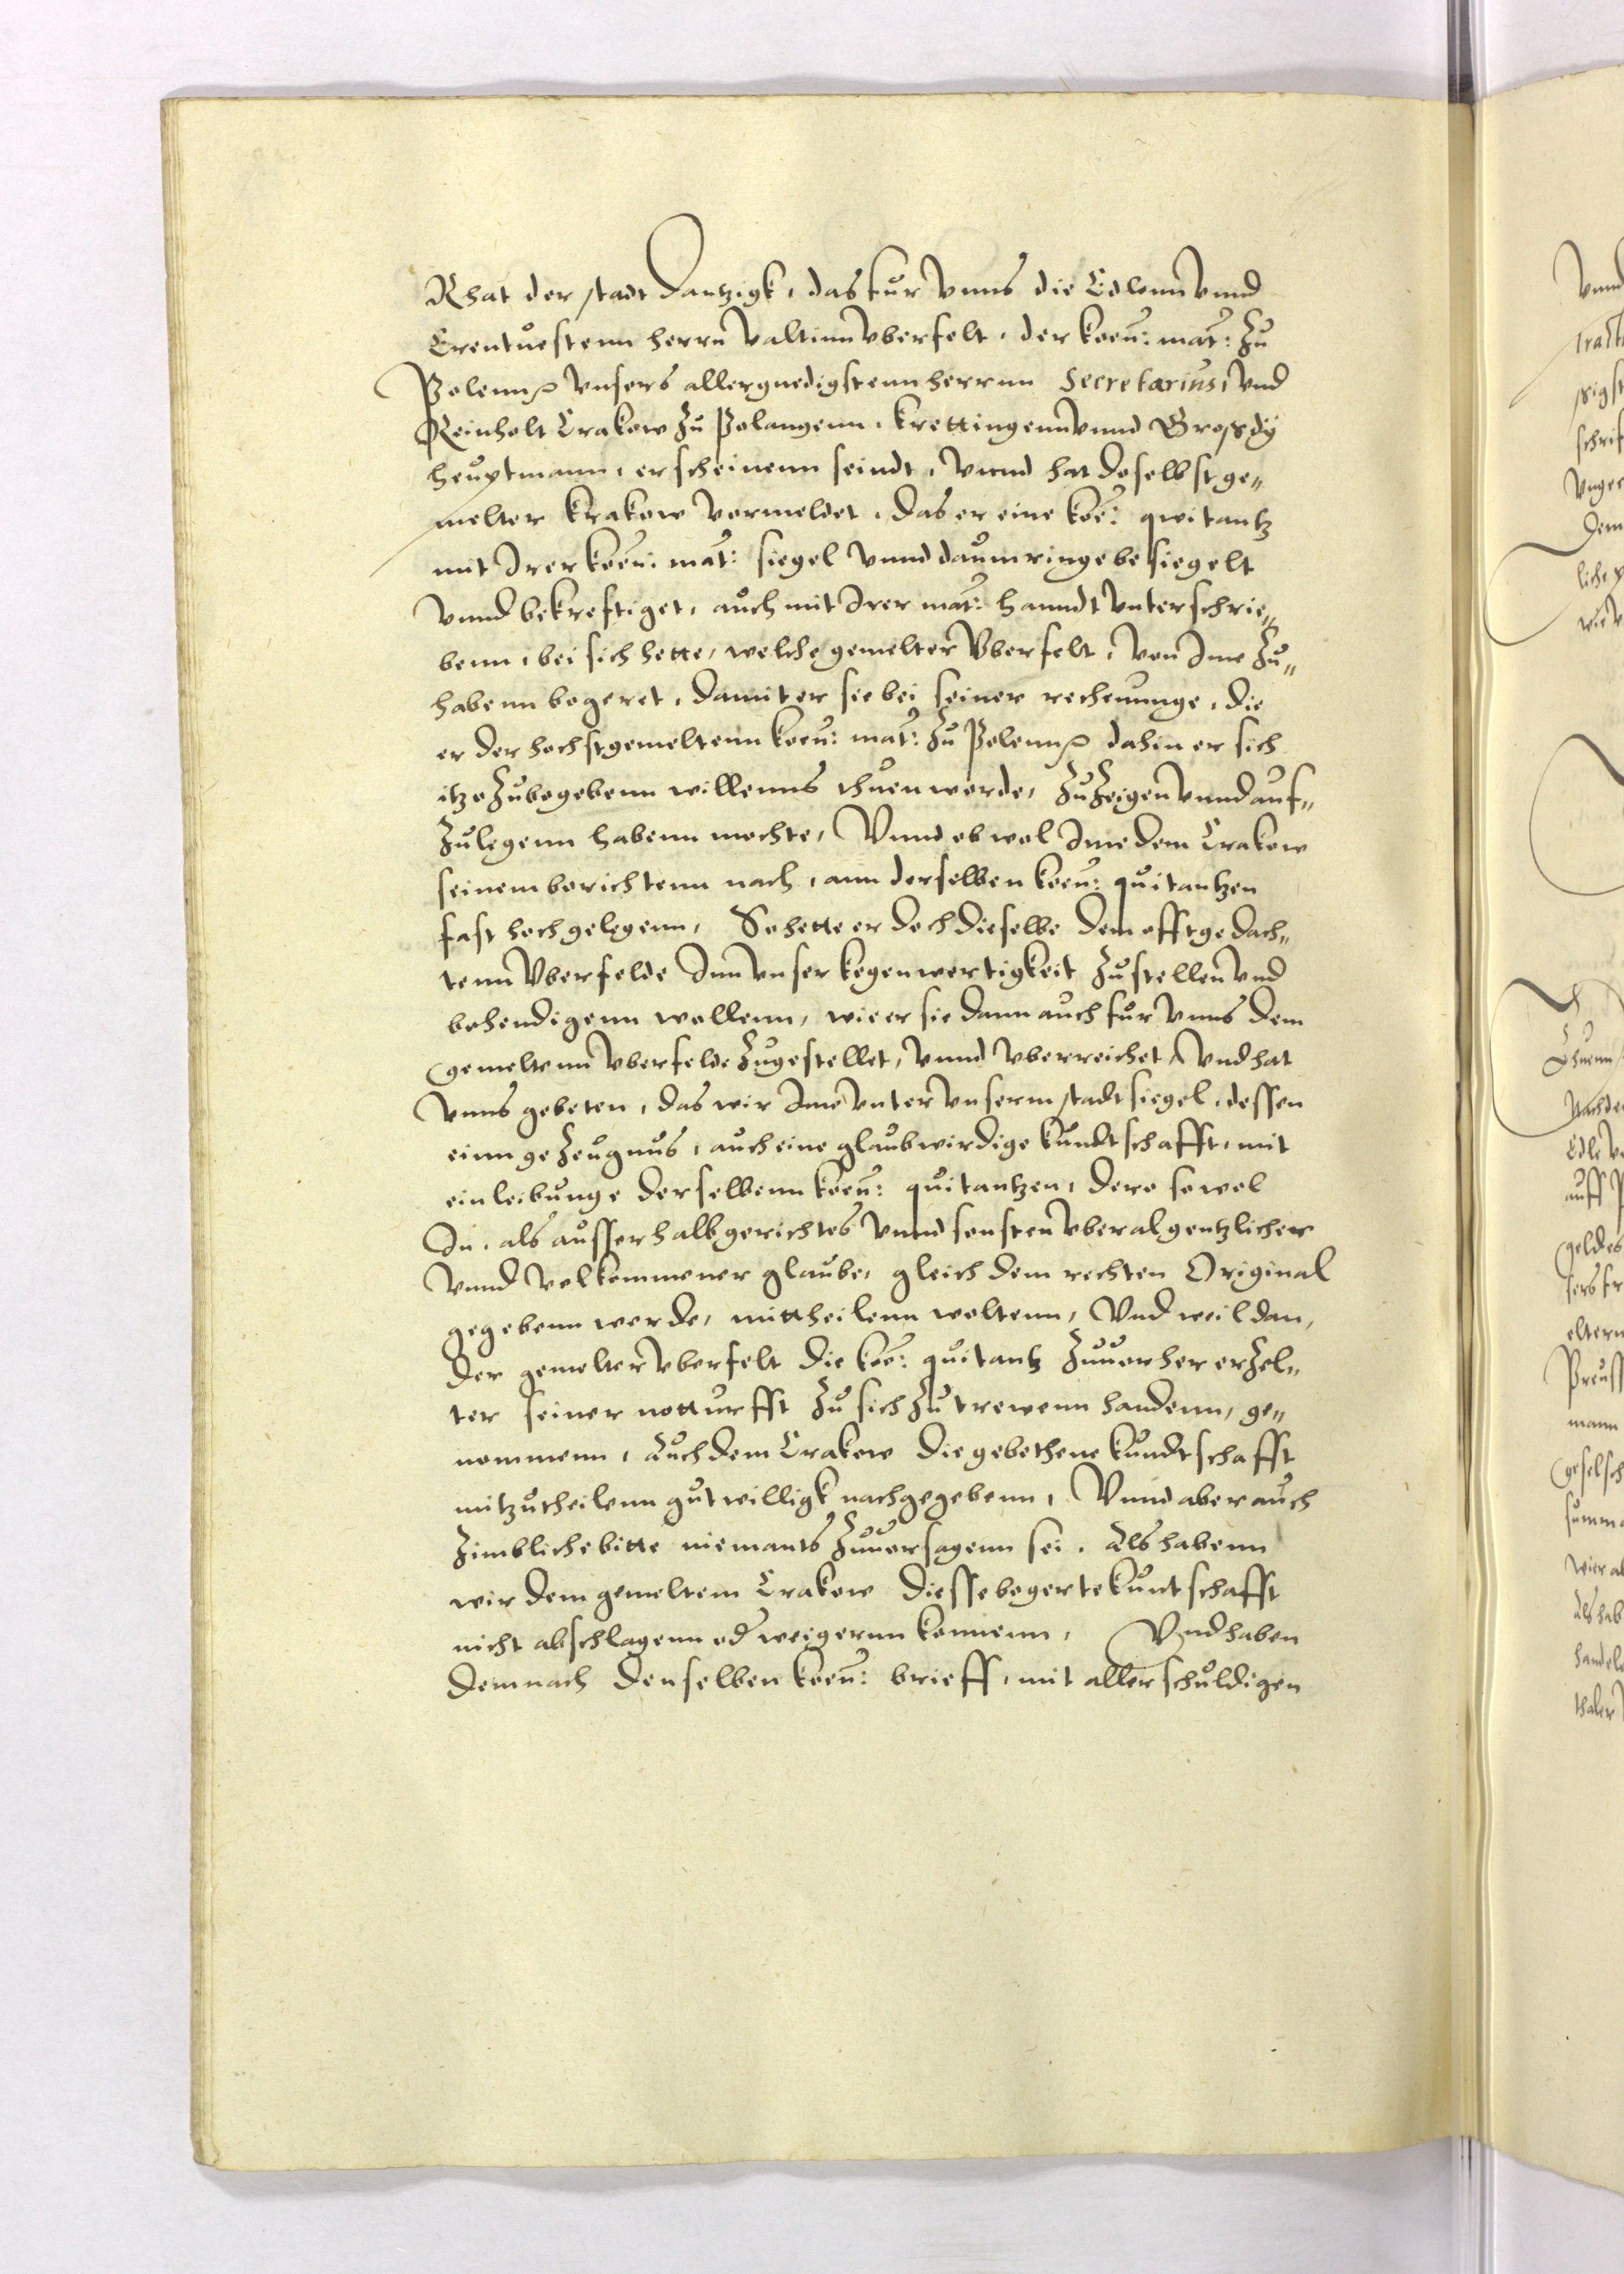 Rhat der stadt Dantzigk, das fur vnns die Edlenn vnnd
Erentuestenn herrn Valtinn Vberfelt, der koen: mat: zu
Polenn ꝛ vnsers allergnedigstenn herrnn Secretarius, vnd
Reinholt Crakow zu Polangenn, Krettingenn vnnd Grosdy
heuptmann, erscheinenn seindt, vnnd hat doselbst ge„
melter Krakow vormeldet, das er eine koe: qwitantz
mit Irer koen: mat: siegel vnnd daumringe besiegelt
vnnd bekreftiget, auch mit Irer mat: hanndt vnterschrie„
benn, bei sich hette, welche gemelter Vberfelt, von Ime zu„
habenn begeret, damit er sie bei seiner rechnunge, die
er der hochstgemeltenn koen: mat: zu Polenn ꝛ dahin er sich
itzo zubegebenn willenns thuen werde, zuzeigen vnnd auf„
zulegenn habenn mochte, Vnnd ob wol Ime dem Crakow
seinem berichtenn nach, ann derselben koen: quitantzen
fast hoch gelegenn, So hette er doch dieselbe dem offtgedach„
tenn Vberfelde Inn vnser kegenwertigkeit zustellen vnd
behendigenn wollenn, wie er sie dann auch fur vnns dem
gemeltenn Vberfelde zugestellet, vnnd vberreichet, Vnd hat
vnns gebeten, das wir Ime vnter vnserm stadt siegel, dessen
einn gezeugnus, auch eine glaubwirdige kundtschafft, mit
einleibunge derselbenn koen: quitantzen, dero sowol
In, als ausserhalb gerichtes vnnd sonsten vberal gentzlicher
vnnd volkommener glaube, gleich dem rechten Original
gegebenn werde, mittheilenn woltenn, Vnd weil dan,
der gemelter Vberfelt die koe: quitantz zuuorher erzel„
ter seiner notturfft zu sich zu trewenn handenn, ge„
nommenn, Auch dem Crakow die gebethene kundtschafft
mitzutheilenn gutwilligk nachgegebenn, Vnnd aber auch
zimbliche bitte niemants zuuorsagenn sei, Als habenn
wir dem gemeltem Crakow diesse begerte kuntschafft
nicht abschlagenn od weigernn konnenn, Vnd haben
demnach denselben koen: brieff, mit aller schuldigen